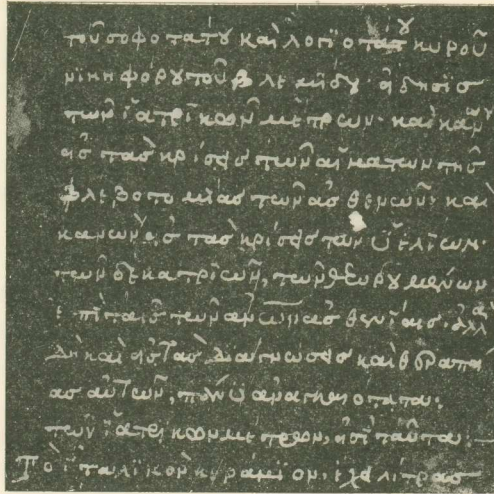 τοῦ σοφοτάτου καὶ λογιοτάτου κυροῦ
νικηφόρου τοῦ βλεμίδου· ἐξήγησις
τῶν ἰατρικῶν μέτρων· καὶ κανὼν
εἰς τὰς κρίσεις τῶν αἱμάτων τῆς
βλεβοτομίας τῶν ἀσθενῶν· καὶ
κανὼν εἰς τὰς κρίσεις τῶν ὑελίων·
τῶν δεκατριῶν, τῶν θεωρουμένων
ἐπὶ ταῖς τῶν ἀν̅ω̅ν ἀσθενείαις· ἀλλὰ
δὴ καὶ εἰς τὰς διαγνώσεις καὶ θεραπεί
ας αὐτῶν, πάνυ ἀναγκαιότατα:
τῶν ἰατρικῶν μέτρων, εἰσὶ ταῦτα:
Τὸ ἰταλικὸν κεράμιον, ἔχει λίτρας